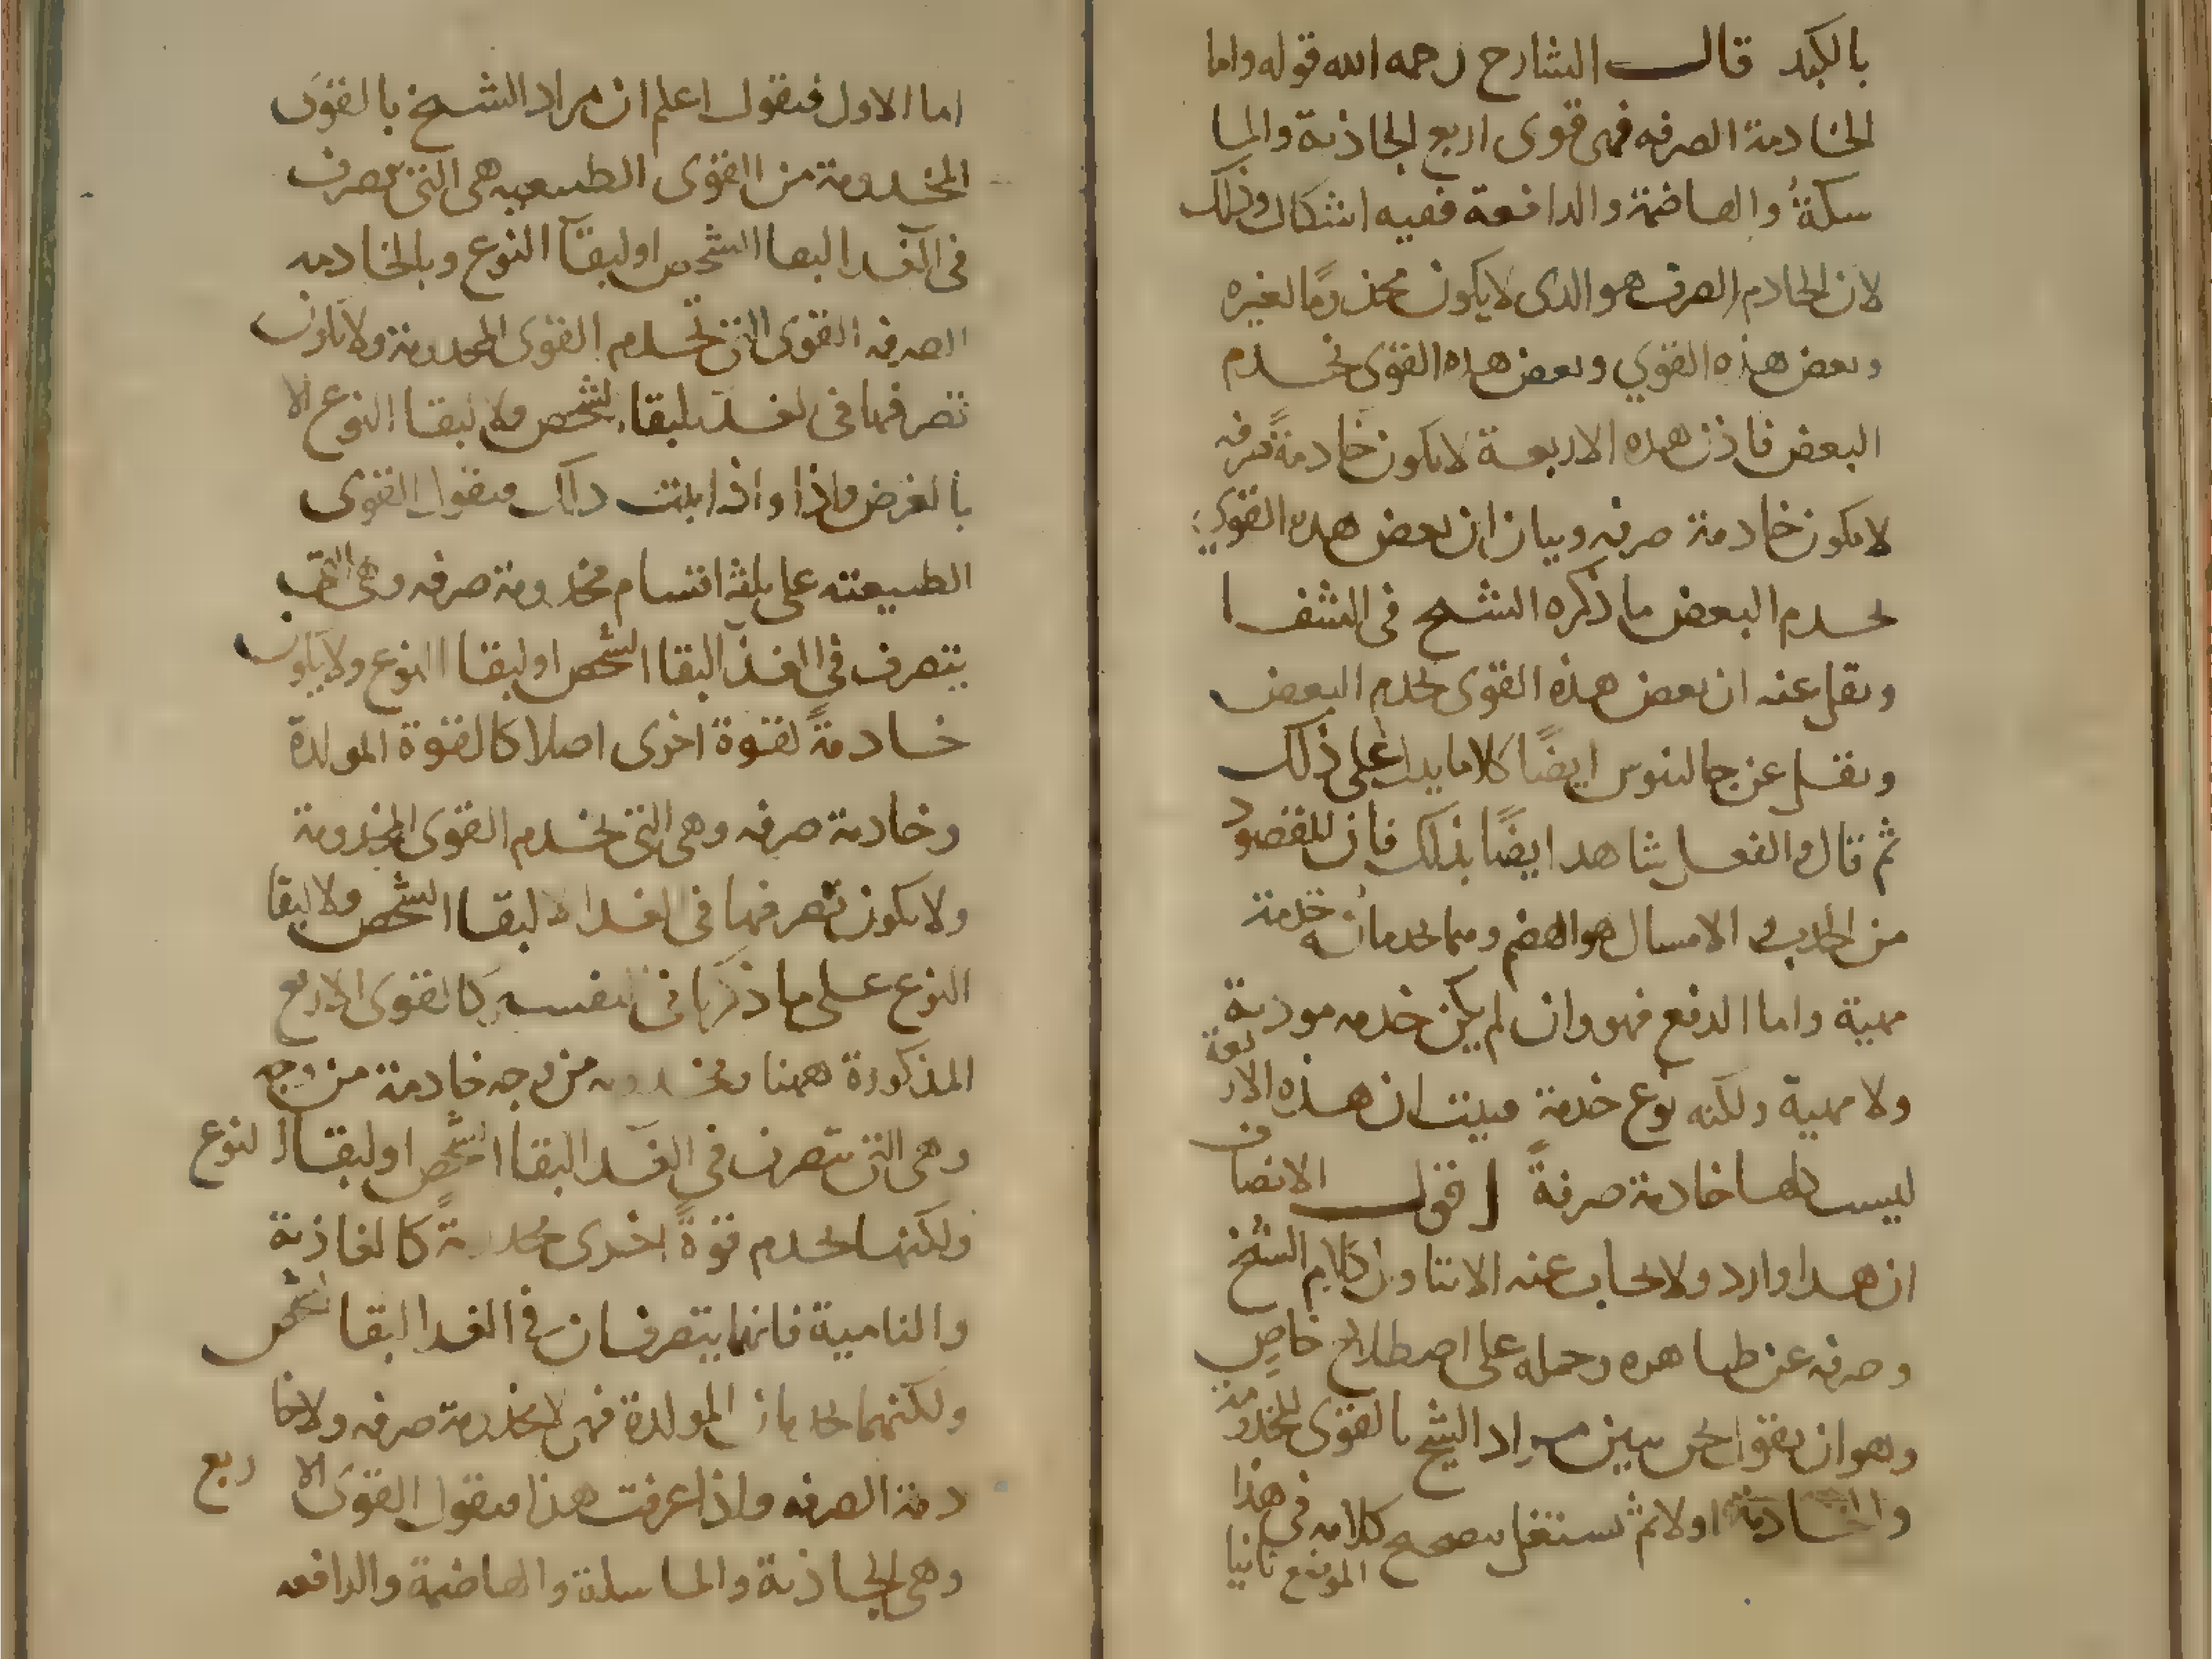 بالكبد قال الشارح رحمه الله قوله واما
الخادمة الصرفه فهى قوى اربع الجاذبة والما
سكةُ والهاضمة والدافعة ففيه اشكال وذلك
لان الخادم الصرف هو الدى لا يكون مخذومًا لغيره
وبعض هذه القوي وبعض هده القوى يخدم
البعض فاذن هده الاربعة لا يكون خادمةً صرفه
لا يكون خادمة صرفه وبيان ان بعض هده القوى
يحدم البعض ما ذكره الشيخ فى الشفا
ونقل عنه ان بعض هذه القوى يحدم البعض
ونقل عن جالينوس ايضًا كلاما يدل على ذلك
ثم قال والفعل شاهد ايضًا بذلك فان المقصود
من الجذب الامساك هو الهضم وهما يحدمانه خدمة
مهية واما الدفع فهو وان لم يكن خدمه موذية
ولا مهية ولكنه نوع خدمة فبينت ان هذه الاربعة
ليست كلها خادمة صرفةً اقول الانصاف
ان هدا وارد ولا يجاب عنه الا بتاويل كلام الشيخ
وصرفه عن ظاهره وحمله على اصطلاح خاصٍ
وهو ان يقول نحن نبين مراد الشيخ بالقوى المخدومة
والخادمة اولا ثم نشتغل بتصحيح كلامه فى هذا
الموضع ثانيا
اما الاول فنقول اعلم ان مراد الشيخ بالقوى
المخدومة من القوى الطبيعيه هى التى تصرف
فى الغدا لبقا الشخص او لبقآ النوع وبالخادمه
الصرفه القوى التى تخدم القوى المخدومة ولا يكون
تصرفها فى الغدا لبقا الشخص ولا لبقا النوع الا
بالعرض واذا واذا ثبت ذلك فنقول القوى
الطبيعته على ثلثه اقسام مخدومة صرفه وهى التى
يتصرف فى الغذآ لبقا الشخص او لبقا النوع ولا يكون
خادمةً لقوة اخرى اصلا كالقوة المولدة
وخادمة صرفه وهى التى تخدم القوى المخدومة
ولا يكون تصرفها فى الغدا لا لبقا الشخص ولا لبقا
النوع على ما ذكرنا فى نفسه كالقوى الاربع
المذكورة ههنا ومخدومه من وجه خادمة من وجه
وهى التى يتصرف فى الغدا لبقا الشخص او لبقا النوع
ولكنها يحدم قوةً اخرى مخدومةً كالغاذية
والنامية فانهما يتصرفان فى الغدا لبقا الشخص
ولكنهما يخدمان المولدة فهى لا مخدومة صرفه ولا خا
دمة الصرفه واذا عرفت هذا فنقول القوى الاربع
وهى الجاذبة والماسكة والهاضمة والدافعه